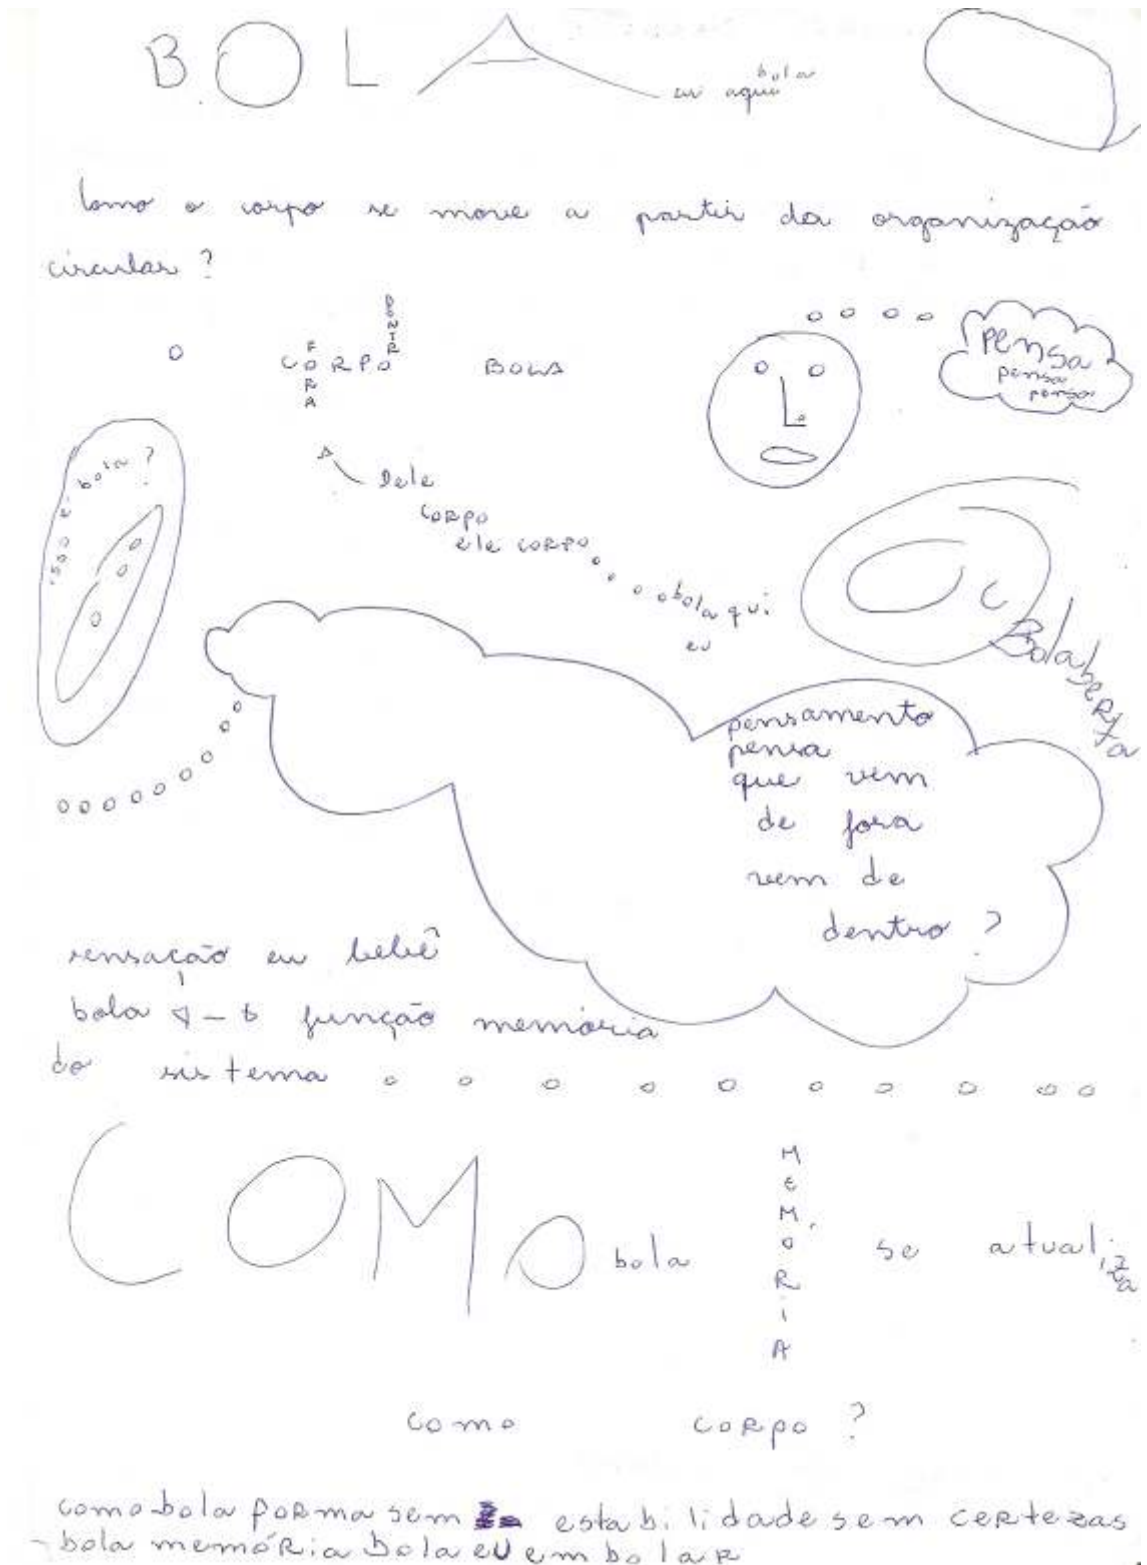 BOLA
eu aqui bola
Como o corpo se move a partir da organização
circular?
DENTR
FORA
CORPO BOLA
pensa
pensa
pensa
isso é bola?
Dele
corpo
ele corpo
bolaqui
eu
Bolaberta
pensamento
pensa
que vem
de fora
vem de
dentro?
sensação eu bebê
bola função memória
do sistema
COMO bola MEMORIA se atualiza
como corpo?
como bola forma sem estabilidade sem certezas
bola memória bola eu embolar